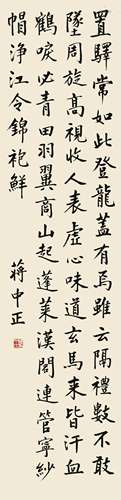 置驛常如此登龍蓋有焉雖云隔禮數不敢
墜周旋高視收人表虛心味道玄馬來皆汗血
鶴唳必青田羽翼商山起蓬萊漢閣連管寧紗
帽淨江令錦袍鮮
蔣中正